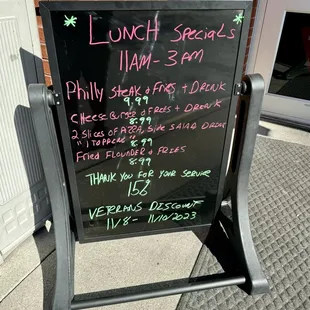 LUNCH Specials
11AM - 3PM
Philly Steak & Fries + DRINK
9.99
Cheese Burger & FRIES + DRINK
8.99
2 Slices of PIZZA, Side SALAD DRINK
"1 TOPPING" 8.99
Fried Flounder & FRIES
8.99
THANK YOU FOR YOUR SERVICE
15%
VETERANS DISCOUNT
11/8 - 11/10/2023